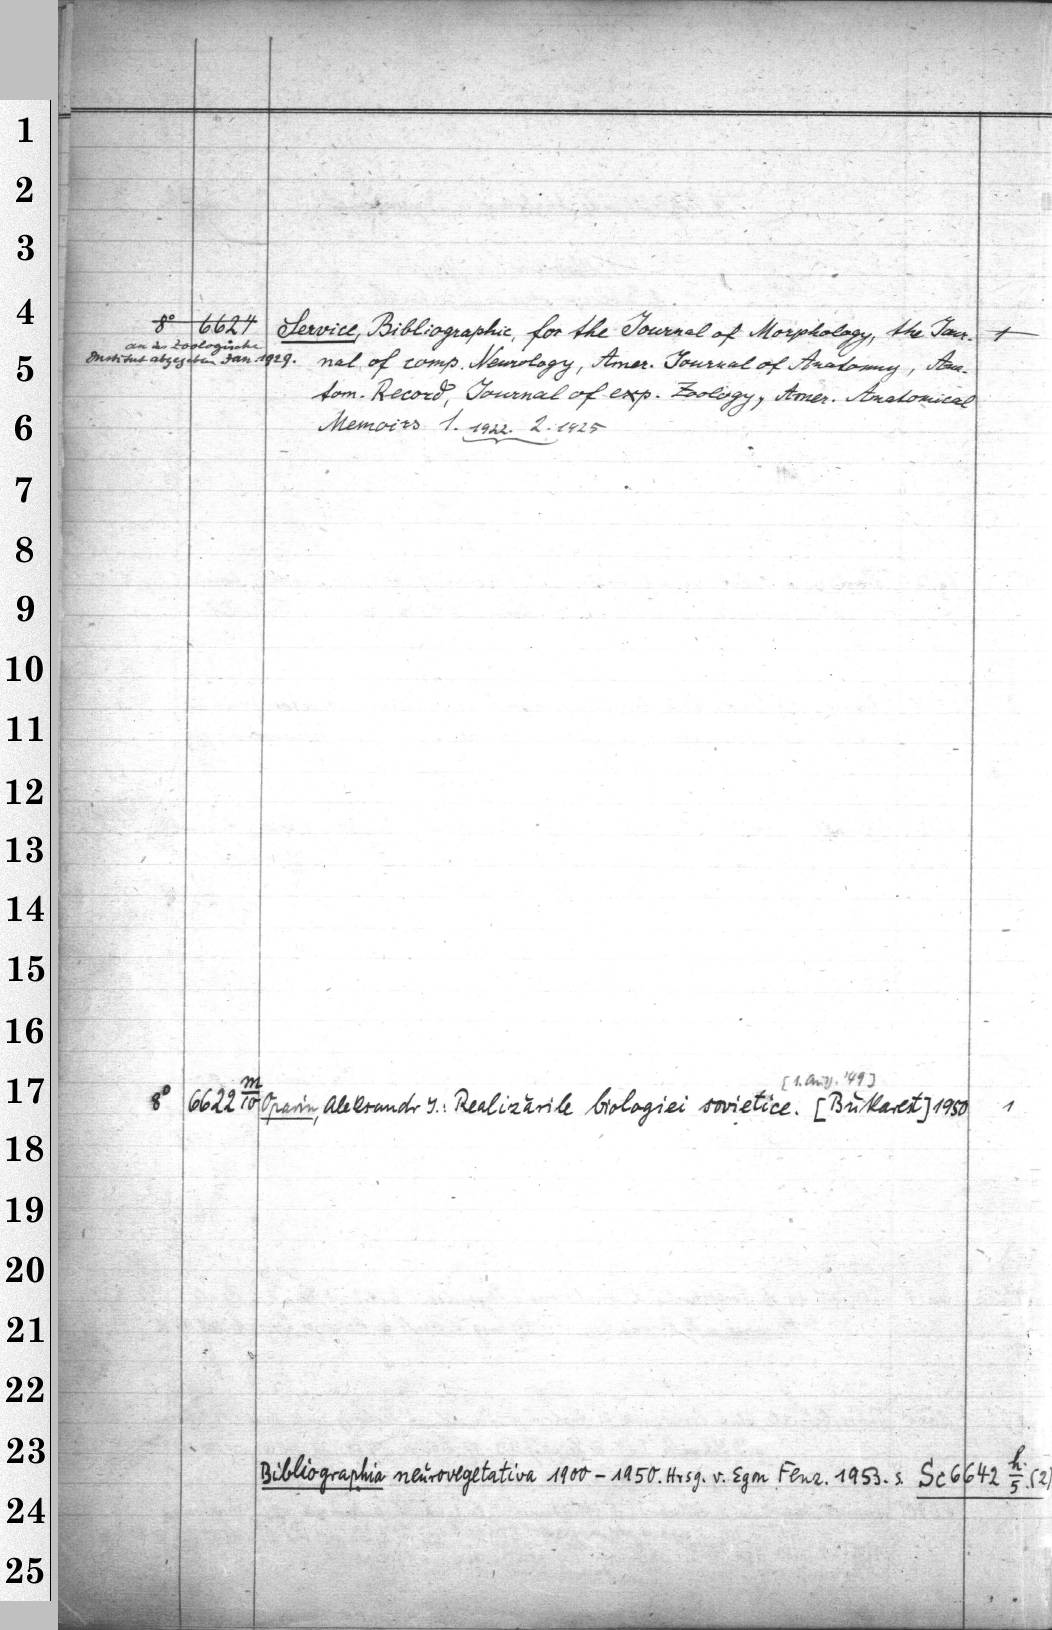 1
2
3
4
8° 6624 Service, Bibliographic, for the Journal of Morphology, the Jour- 1
an das Zoologische
Institut abgegeben Jan. 1929.
5
nal of comp. Neurology, Amer. Journal of Anatomy, Ana-
tom. Record, Journal of exp. Zoology, Amer. Anatomical
6
Memoirs 1. 1922. 2. 1925
7
8
9
10
11
12
13
14
15
16
[1. Aufl. '49]
17
8° 6622 m/10 Oparin, Aleksandr I.: Realizările biologiei sovietice. [Bukarest] 1950 1
18
19
20
21
22
23
Bibliographia neurovegetativa 1900-1950. Hrsg. v. Egon Fenz. 1953. s. Sc 6642 h/5 (2)
24
25